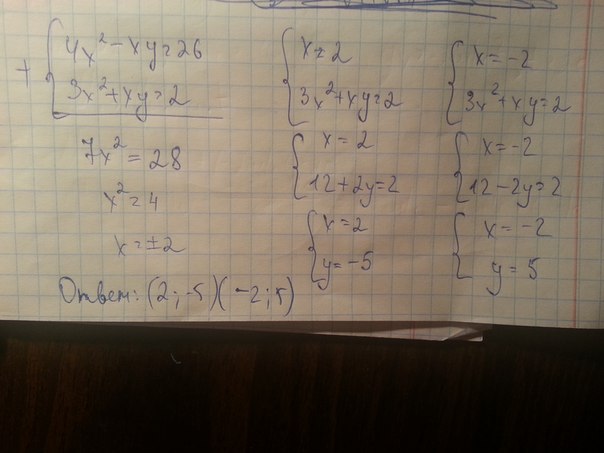 + { 4x² - xy = 26
3x² + xy = 2
7x² = 28
x² = 4
x = ±2
{ x = 2
3x² + xy = 2
{ x = 2
12 + 2y = 2
{ x = 2
y = -5
{ x = -2
3x² + xy = 2
{ x = -2
12 - 2y = 2
{ x = -2
y = 5
Ответ: (2; -5) (-2; 5)